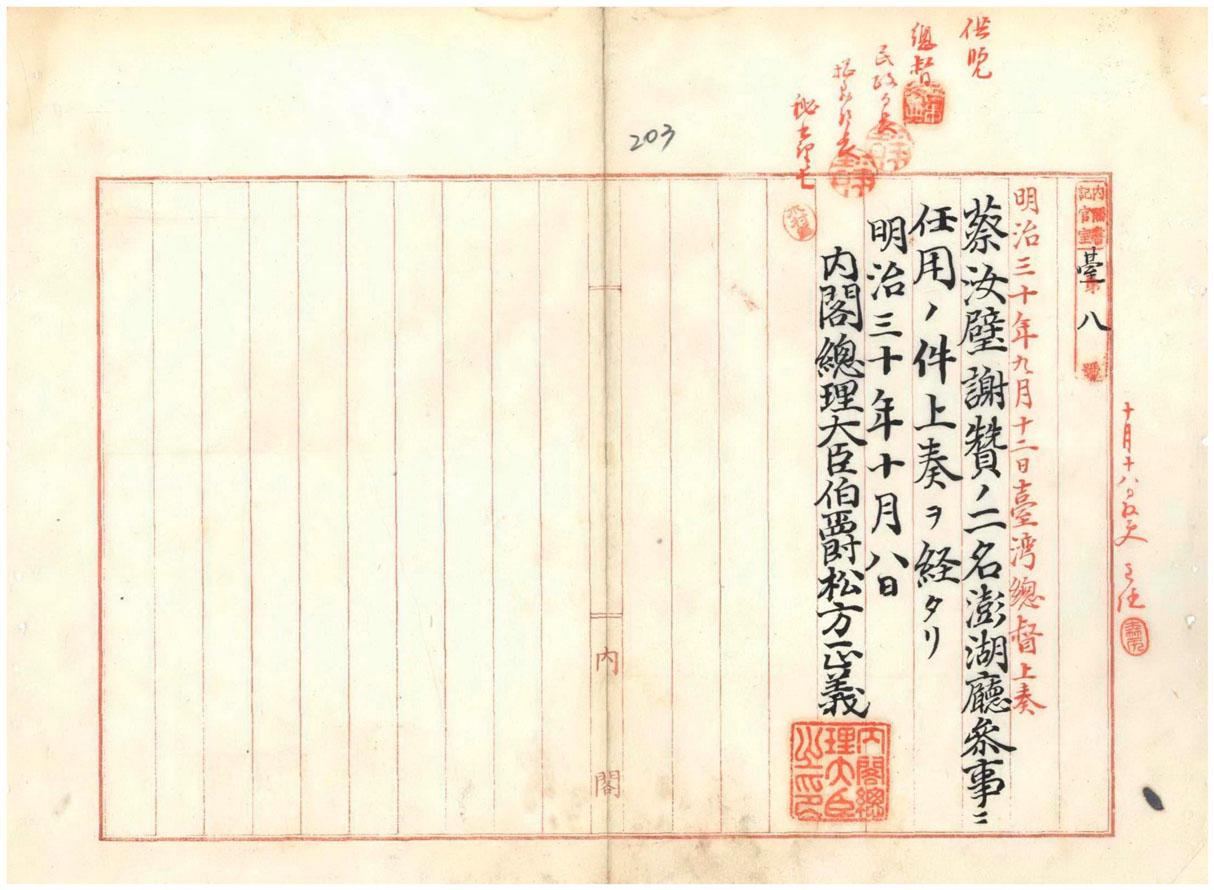 供覧
總督
民政局長
203
内閣書記官室
臺第八號
明治三十年九月十二日臺湾總督上奏
蔡汝璧謝賛ノ二名澎湖廳参事ニ
任用ノ件上奏ヲ経タリ
明治三十年十月八日
内閣總理大臣伯爵松方正義
内閣總理大臣之印
内閣
十月十八日
主任